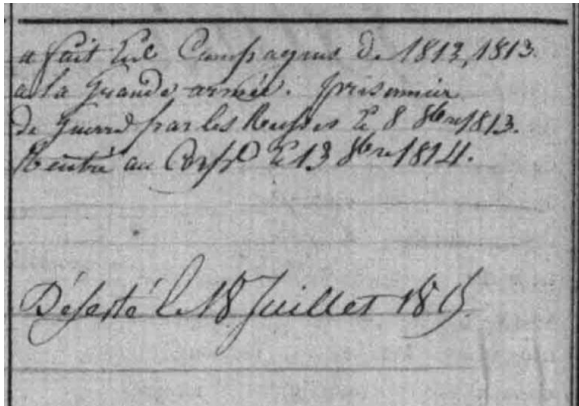 a fait les Campagnes de 1812, 1813.
a la Grande armée. prisonnier
de Guerre par les Russes le 8 8bre 1813.
Rentré au Corps le 13 8bre 1814.
Déserté le 18 Juillet 1815.